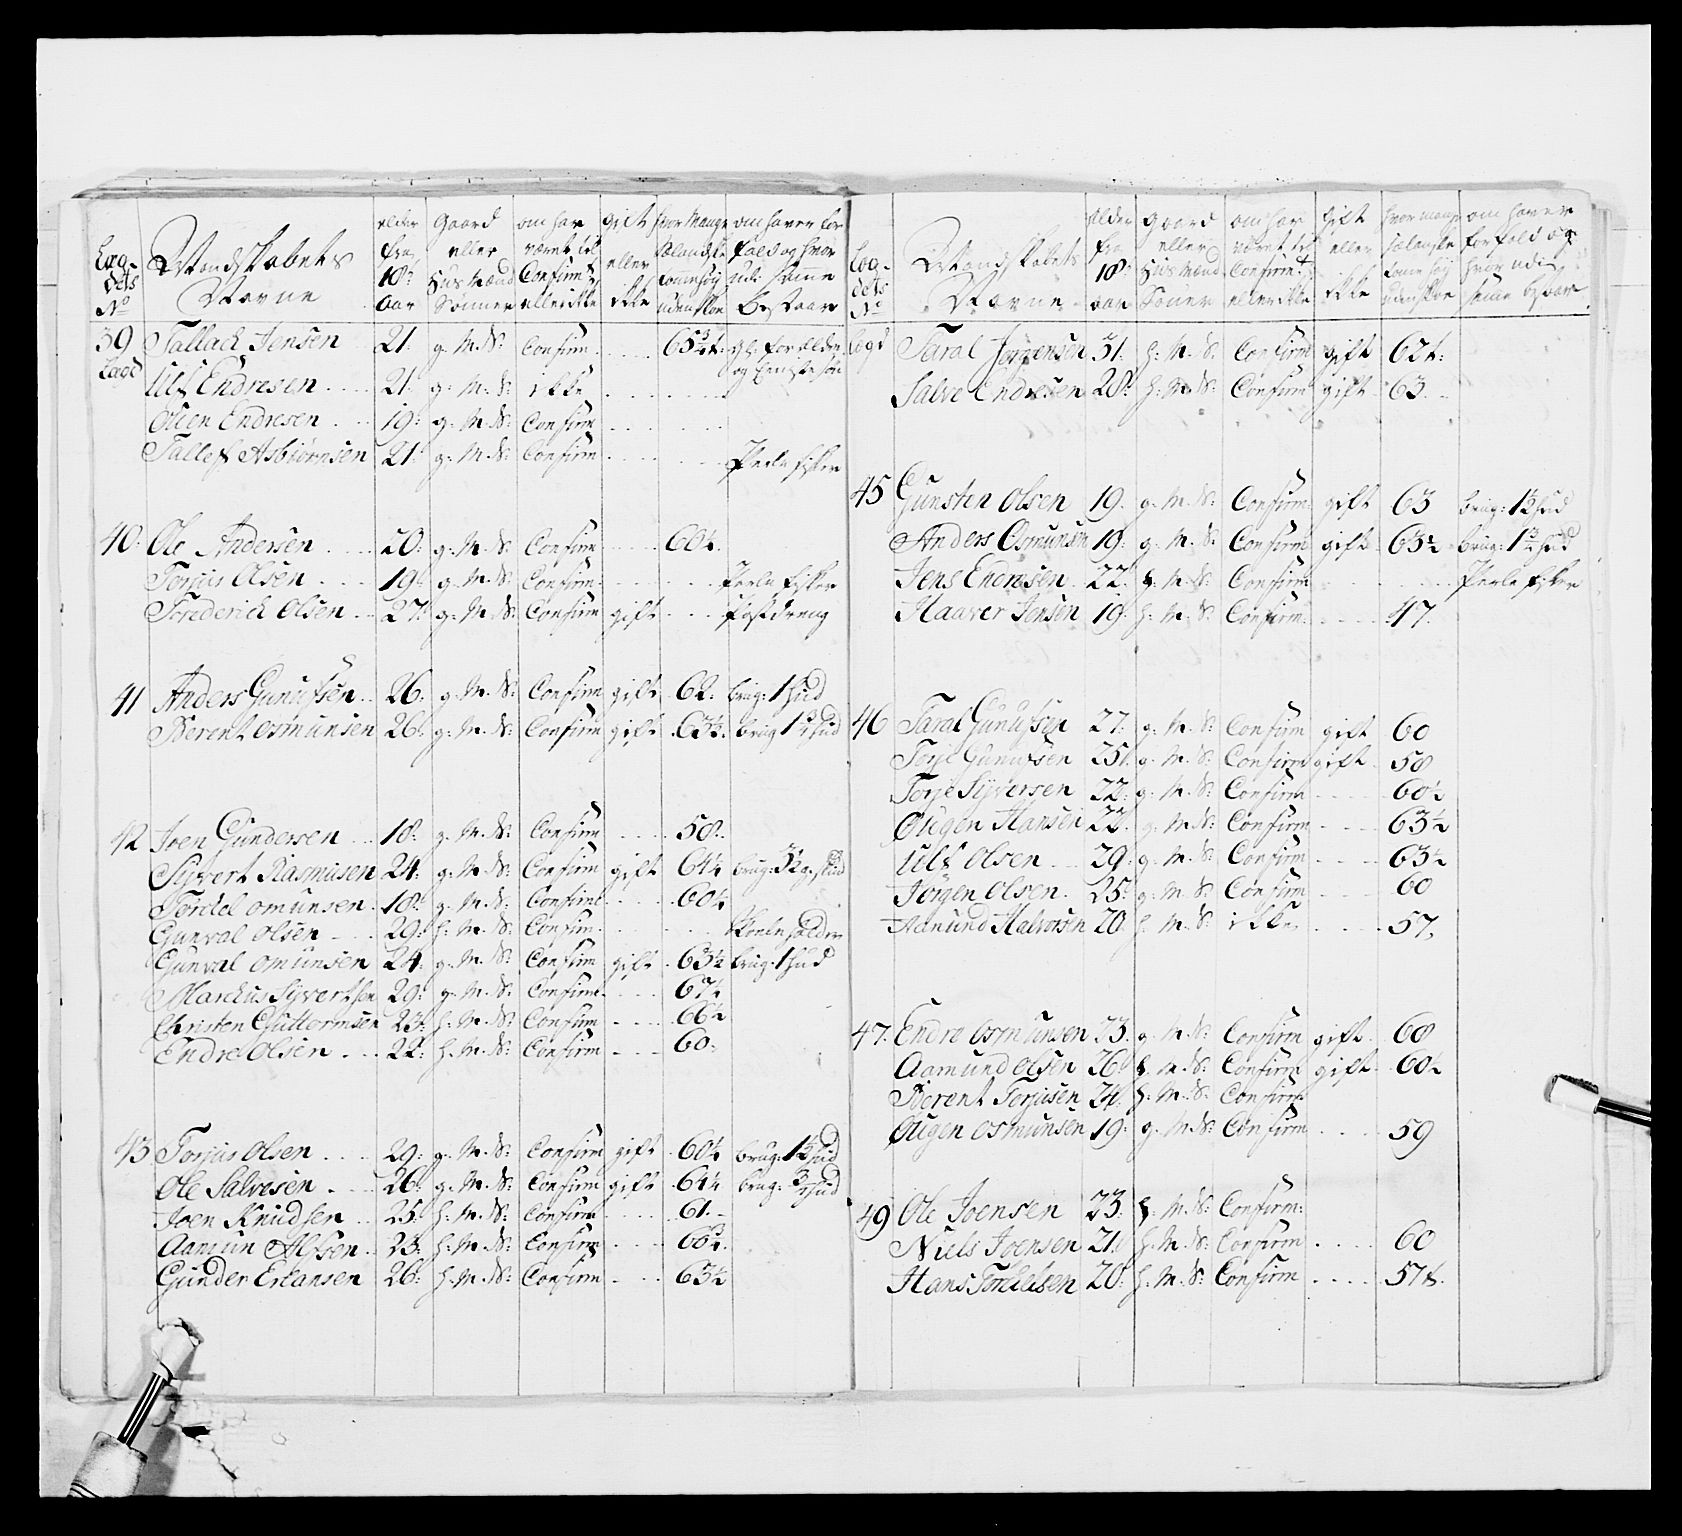 Læg-
dets
No
Mandskabets
Navne
alder
fra
18de
Aar
Gaard
eller
Huusmænd
Sønner
om har
været til
Confirmt
eller ikke
gift
eller
ikke
hvor Mange
Sælandske
tommer høy
uden Skoe
om haver for
fald og hvor
udi samme
Bestaar
39 Tallack Jensen 21. g. M. S: Confirm 65 3/4 t. gl. forældre
Lægd og Eeniste søn
Ulf Endresen 21. g. M. S: ikke
Ougen Endresen 19. g. M. S: Confirm
Tallef Asbiørnsen 21. g. M. S: Confirm Perle fisker
40. Ole Andersen 20. g. M. S: Confirm 60 1/2
Torjus Olsen 19. g. M. S: Confirm Perle fisker
Frederick Olsen 27. g. M. S: Confirm gift Postdreng
41 Anders Gunufsen 26. g. M. S: Confirm gift 62. brug: 1 hud
Berent Osmunsen 26. g. M. S: Confirm gift 63 1/2. brug 1 3/4 hud
42 Joen Gundersen 18. g. M. S: Confirm 58.
Syvert Rasmusen 24. g. M. S: Confirm gift 64 1/2 brug: 3 1/2 g. hud
Torckel Omunsen 18. g. M. S: Confirm 60 1/2
Gunval Olsen 29. h. M. S: Confirm Skoleholder
Gunval Omunsen 24. g. M. S: Confirm gift 63 1/2 brug: 1 hud
Marckus Syvertsen 29. g. M. S: Confirm 67 1/2
Christen Guttormsen 23. h. M. S: Confirm 66 1/2
Endre Olsen 22. h. M. S: Confirm 60.
43 Torjus Olsen 29. g. M. S: Confirm gift 60 1/2 brug: 1 1/2 hud
Ole Salvesen 26. g. M. S: Confirm gift 64 1/2 brug: 3/4 hud
Joen Knudsen 25. h. M. S: Confirm 61.
Aamun Alfsen 23. h. M. S: Confirm 66 3/4.
Gunder Erlansen 26. h. M. S: Confirm 63 1/2
Læg-
dets
No
Mandskabets
Navne
Alder
fra
18de
aar
Gaard
eller
Huusmænd
Sønner
om har
været til
Confirmt
eller ikke
Gift
eller
ikke
hvor mange
sælanske
tomer høy
uden skoe
om haver
forfald og
hvor udi
samme bestaar
Lægd Taral Jørgensen 31. h. M. S: Confirm gift 62 t.
Salve Endresen 28. h. M. S: Confirm gift 63.
45 Gunsten Olsen 19. g. M. S: Confirm gift 63 brug: 1 1/2 hud
Anders Osmunsen 19. g. M. S: Confirm gift 63 1/2 brug: 1 3/4 hud
Jens Endresen 22. h. M. S: Confirm Perle fisker
Haaver Jensen 19. h. M. S: Confirm 47.
46 Taral Gunufsen 27. g. M. S: Confirm gift 60
Torje Gunufsen 25. g. M. S: Confirm gift 58
Torje Syversen 22. g. M. S: Confirm 60 1/2
Ougen Hansen 22. g. M. S: Confirm 63 1/2
Ulf Olsen 29. g. M. S: Confirm 63 1/2
Jørgen Olsen 25. g. M. S: Confirm 60
Aanund Halvorsen 20. h. M. S: ikke 57,
47. Endre Osmunsen 23. g. M. S: Confirm gift 68
Aamund Olsen 26. h. M. S: Confirm gift 60 1/2
Berent Torjusen 24. h. M. S: Confirm
Ougen Osmunsen 19. g. M. S: Confirm 59
49 Ole Joensen 23. h. M. S: Confirm:
Niels Joensen 21. h. M. S: Confirm 60
Hans Torckelsen 20. h. M. S: Confirm 57 t.